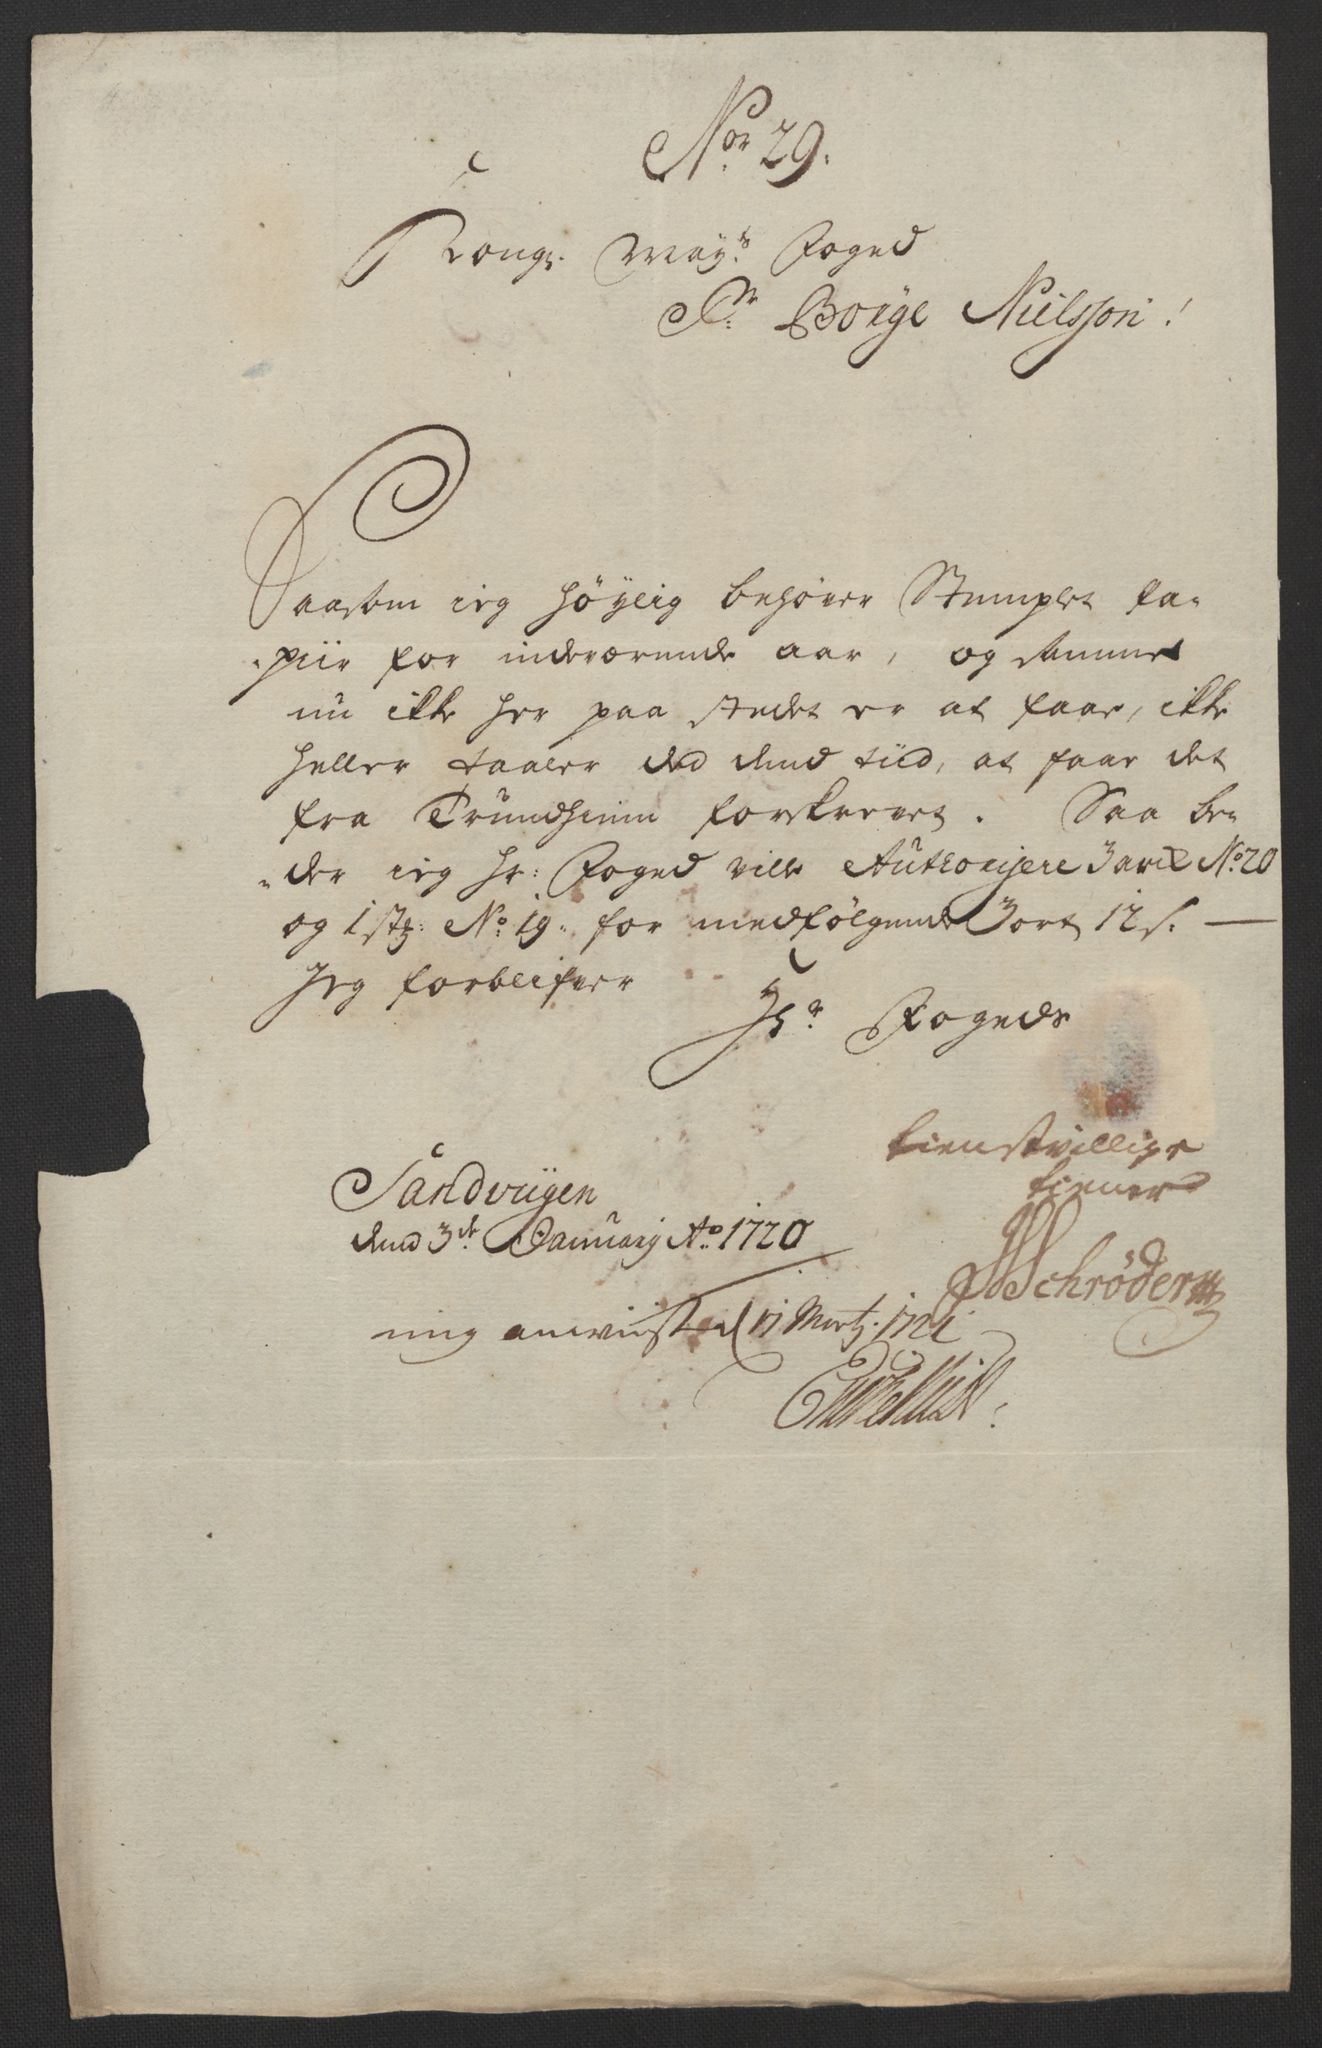 Nor 29.
Kongl. May:ts Foged
Sr: Borge Nielsson!
Saasom ieg höÿlig behøver Stemplet Pa-
-piir for inderærende aar, og samme
nu ikke her paa stedet er at faae, ikke
heller taaler ded dend tiid, at faae det
fra Trundhiem forskrevet. Saa be-
-der ieg Hr: Foged ville Authorisere 3 ark No: 20
og 1 stk: No: 19. for medfølgende 3 ort 12 s. —
Jeg forblifver
Hr: Fogeds
tienstvillige
tiener
Sandvügen
dend 3de January Ao: 1720
Schrøder
mig anviist d 17 Martj. 1721